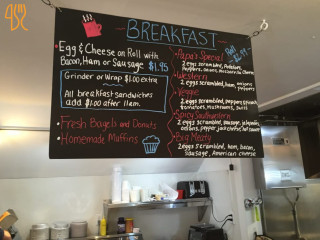 BREAKFAST
Egg & Cheese on Roll with
Bacon, Ham or Sausage $1.95
Grinder or Wrap $1.00 extra
All breakfast sandwiches
add $1.00 after 11am.
Fresh Bagels and Donuts
Homemade Muffins
Papa's Special
2 eggs scrambled, Potatoes,
Peppers, onions, Mozzarella Cheese
Western
2 eggs scrambled, ham, onions,
peppers
Veggie
2 eggs scrambled, peppers, spinach
tomatoes, mushrooms,
Spicy Southwestern
2 eggs scrambled, sausage, jalapeños
onions, pepper jack cheese, hot sauce
Big Meaty
2 eggs scrambled, ham, bacon,
sausage, American cheese